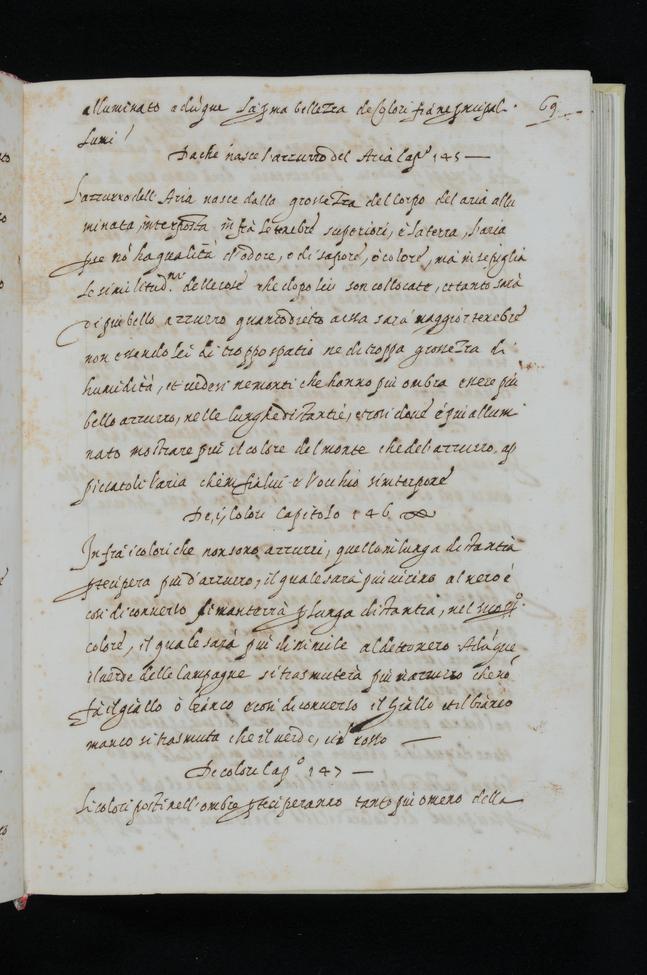 69
alluminato adūque la pª ma bellezza de Colori fia ne principal
Lumi /
Da che nasce l'azzurro del Aria Cap.º 145 —
L'azzurro dell'Aria nasce dalla grossezza del Corpo del aria allu
minata, interposta in frà le tenebre superiori, e la terra, l'aria
per se nō ha qualità d'odore, o di sapore, o colore, ma in se piglia
le similitud.ni delle cose che dopo lei son collocate, et tanto sarà
di piu bello azzurro quanto dietro a essa sarà maggior tenebre
non essendo lei di troppo spatio ne di troppa grossezza di
humidità, et vedesi ne monti che hanno piu ombra essere piu
bello azzurro, nelle lunghe distantie, et così dove é piu allumi
nato mostrare piu il colore del monte che del azzurro, ap
piccatoli l'aria che infra lui e l'occhio s'interpone
De, i, Colori Capitolo 146
In fra i colori che non sono azzurri, quello in lunga distantia
partecipera piu d'azzurro, il quale sarà piu vicino al nero é
così di converso si manterrà per lunga distantia, nel suo pp.º
colore, il quale sarà piu dissimile al detto nero Adūque
il verde delle Campagne si trasmuterà piu in azzurro che nō
fà il giallo ò bianco e così di converso il Giallo et il bianco
manco si trasmuta che il verde, e il rosso —
De colori Cap.º 147 —
Li colori posti nell'ombre parteciperanno tanto piu o meno della